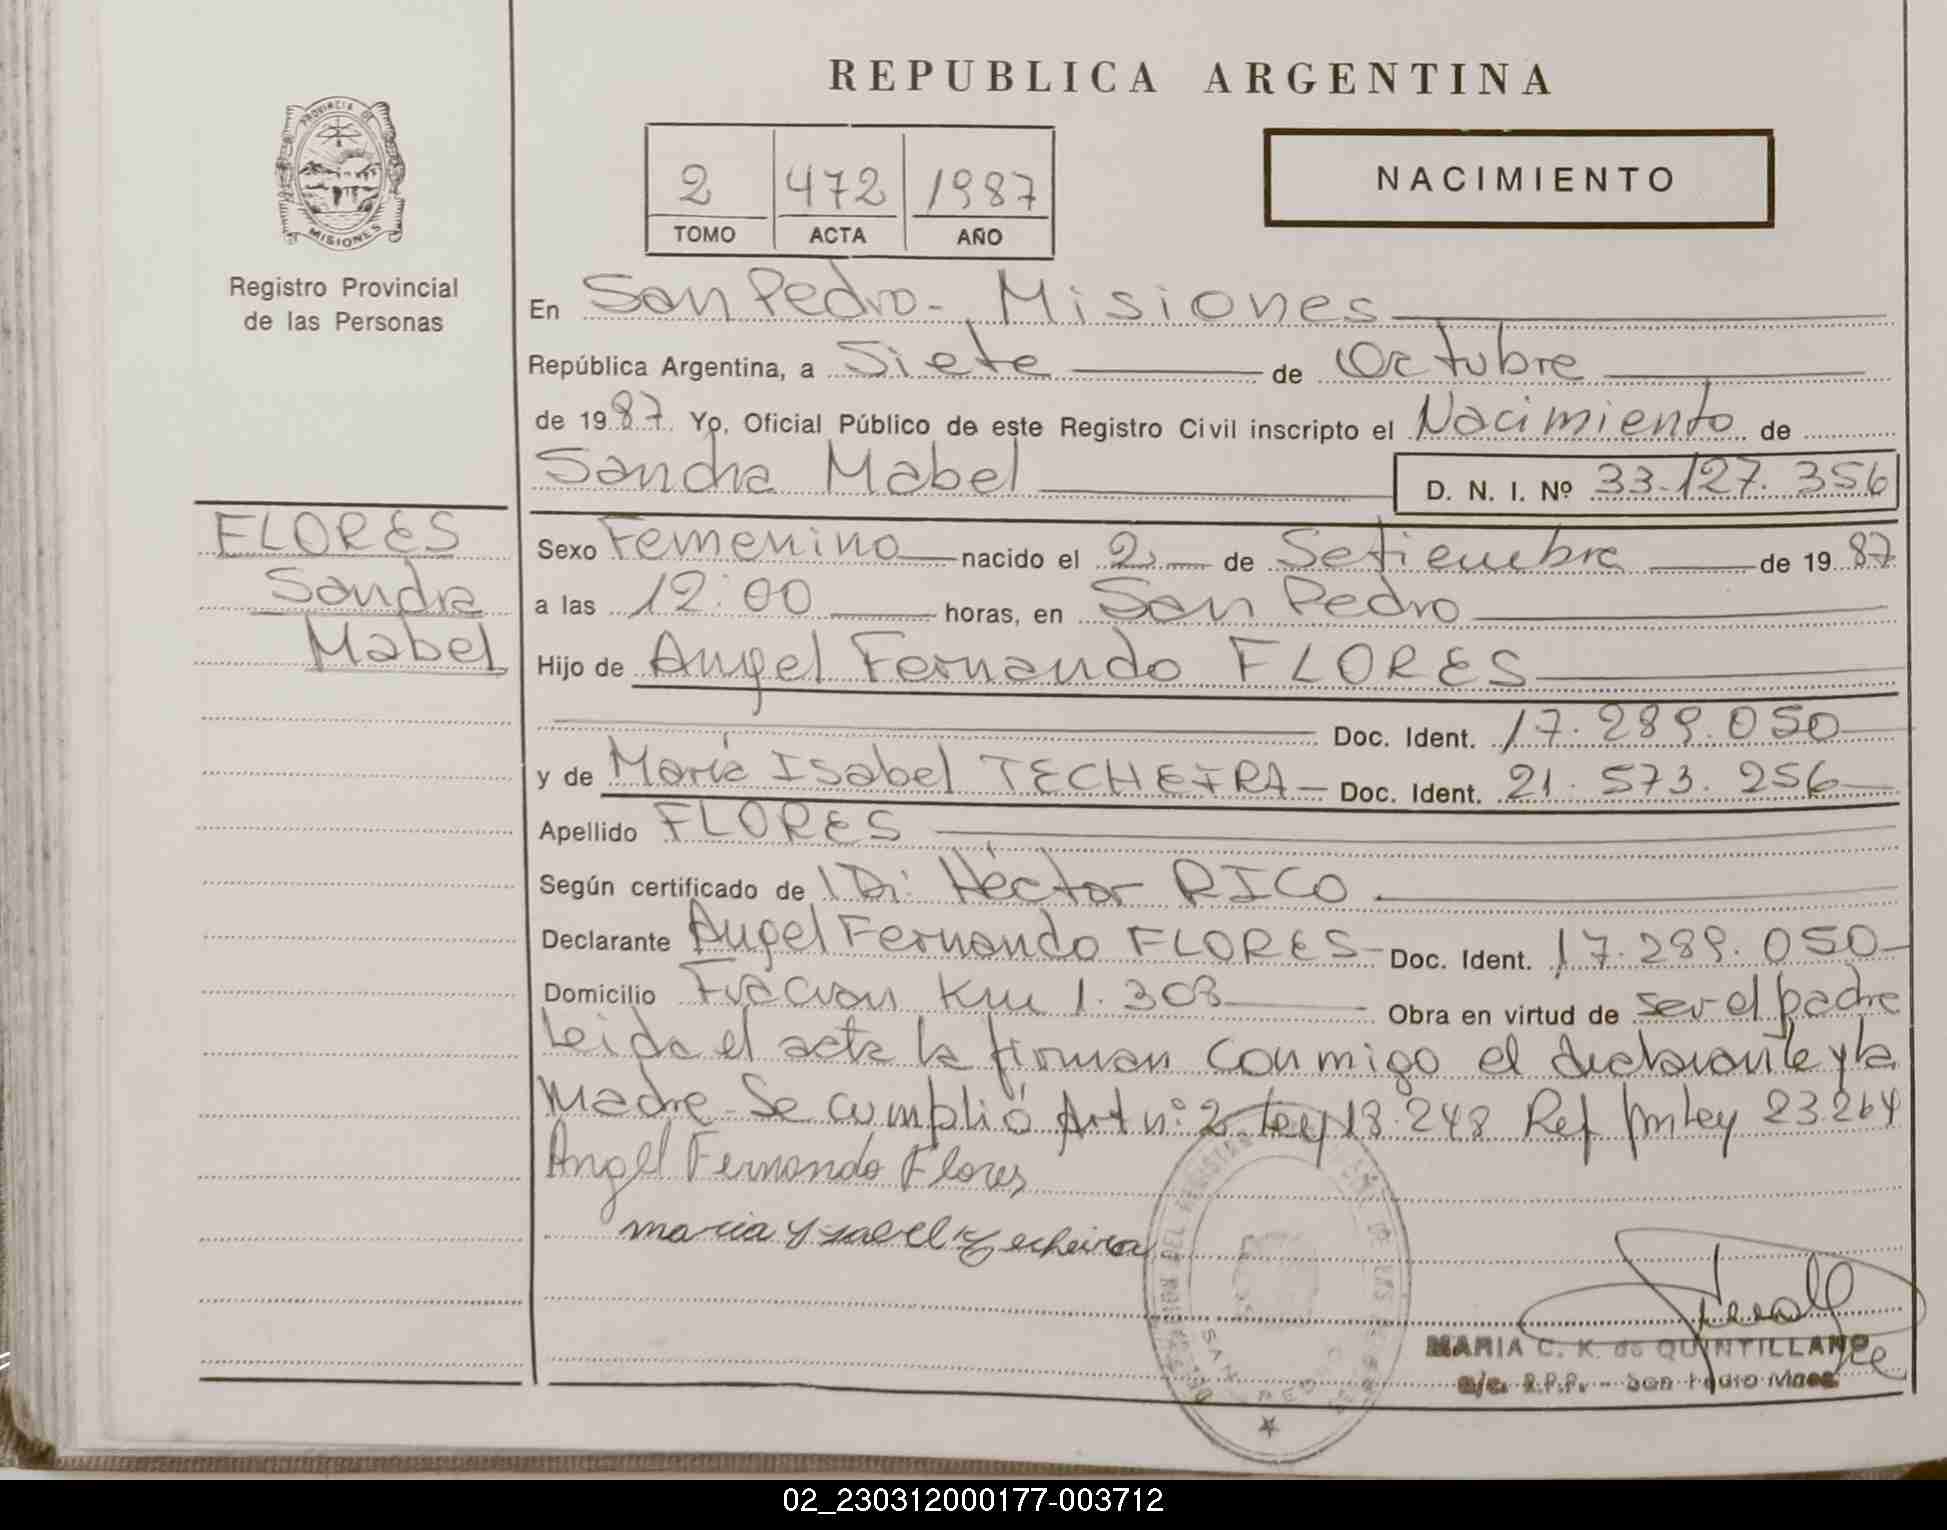 REPUBLICA ARGENTINA
PROVINCIA DE
MISIONES
Registro Provincial
de las Personas
2 472 1987
TOMO ACTA AÑO
NACIMIENTO
En San Pedro - Misiones
República Argentina, a Siete de Octubre
de 1987 Yo, Oficial Público de este Registro Civil inscripto el Nacimiento de
Sandra Mabel D. N. I. Nº 33.127.356
FLORES
Sandra
Mabel
Sexo Femenino nacido el 2 de Setiembre de 1987
a las 12:00 horas, en San Pedro
Hijo de Angel Fernando FLORES
Doc. Ident. 17.289.050
y de María Isabel TECHEIRA Doc. Ident. 21.573.256
Apellido FLORES
Según certificado de Dr. Héctor RICO
Declarante Angel Fernando FLORES Doc. Ident. 17.289.050
Domicilio Fracran Km 1.308 Obra en virtud de ser el padre
Leida el acta la firman conmigo el declarante y la
madre. Se cumplió Art nº 2 Ley 18.248 Ref por Ley 23.264
Angel Fernando Flores
maria Ysabel Techeira
MARIA C. K. de QUINTILLAN
a/c. R.P.P. - San Pedro Mnes
02_230312000177-003712